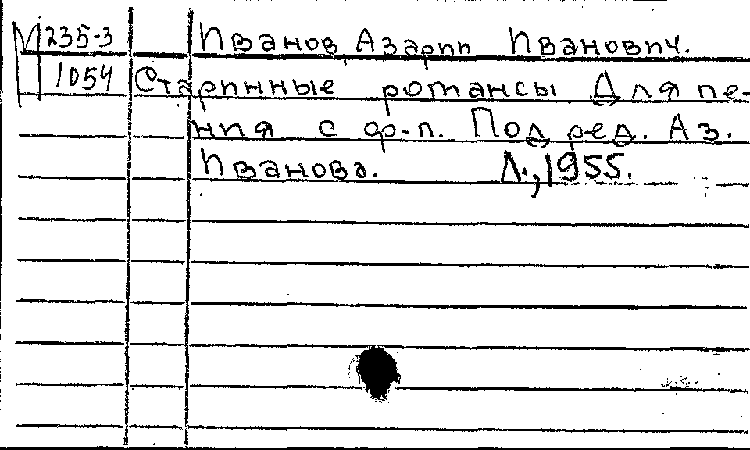 М 235-3 Иванов Азарий Иванович.
1054 Старинные романсы Для пе-
ния с ф-п. Под ред. Аз.
Иванова. Л., 1955.